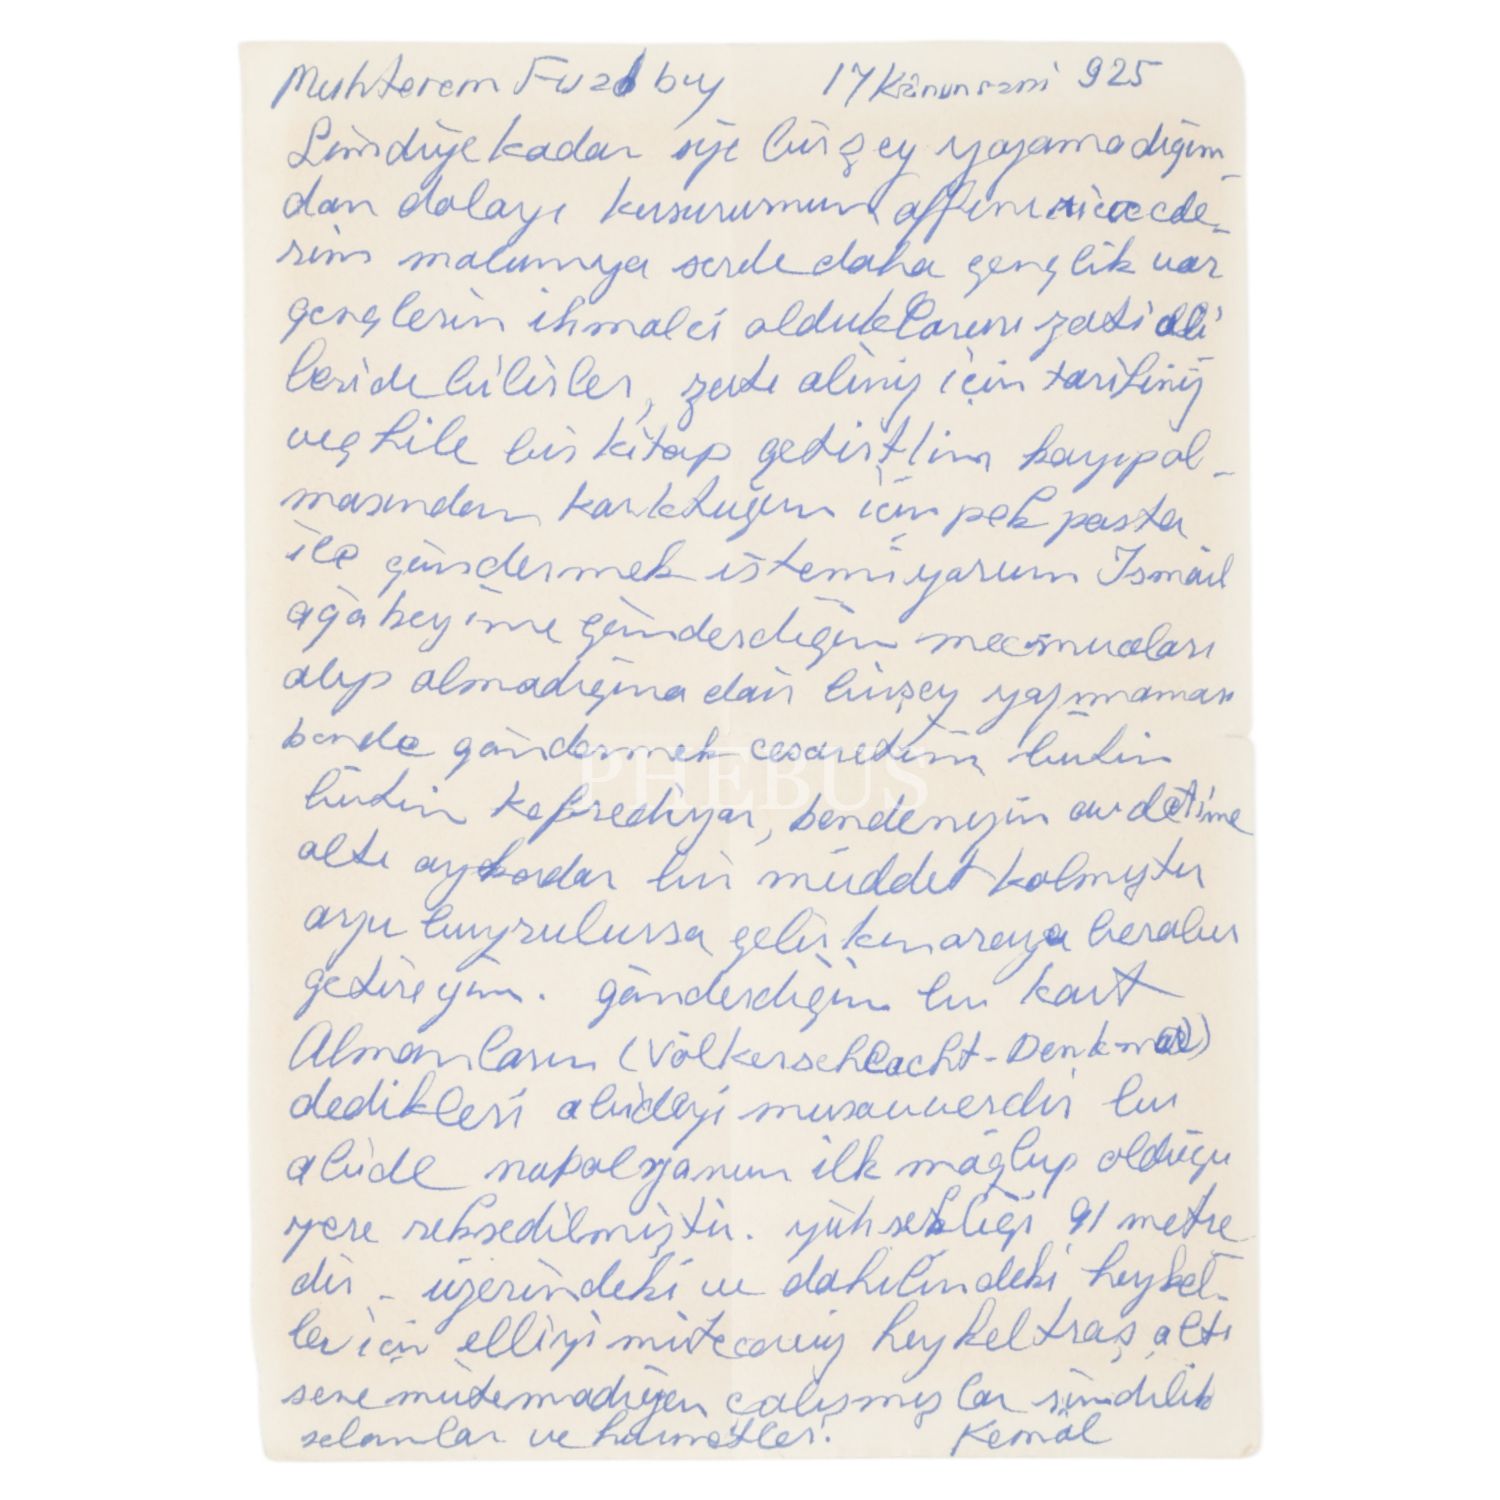 Muhterem Fuad bey 17 Kânunsani 925
Şimdiye kadar size birşey yazamadığım
dan dolayı kusurumun affını rica ede-
rim malumya serde daha gençlik var
gençlerin ihmalci olduklarını zati âli
leride bilirler, zati aliniz için tarifiniz
veçhile bir kitap getirttim kayıpol-
masından korktuğum için pek posta
ile göndermek istemiyorum Ismail
ağabeyime gönderdiğim mecmuaları
alıp almadığına dair birşey yazmaması
bende göndermek cesaretini bütün
bütün kefrediyor, bendenizin avdetime
altı aykadar bir müddet kalmıştır
arzu buyrulursa gelirken oraya beraber
getireyim. gönderdiğim bu kart
Almanların (Völkerschlacht-Denkmal)
dedikleri abideyi musavverdir bu
abide napolyonun ilk mağlup olduğu
yere rekzedilmiştir. yüksekliği 91 metre
dir - üzerindeki ve dahilindeki heykel-
ler için elliyi mütecaviz heykeltraş altı
sene mütemadiyen çalışmışlar şimdilik
selamlar ve hürmetler. Kemâl
PHEBUS